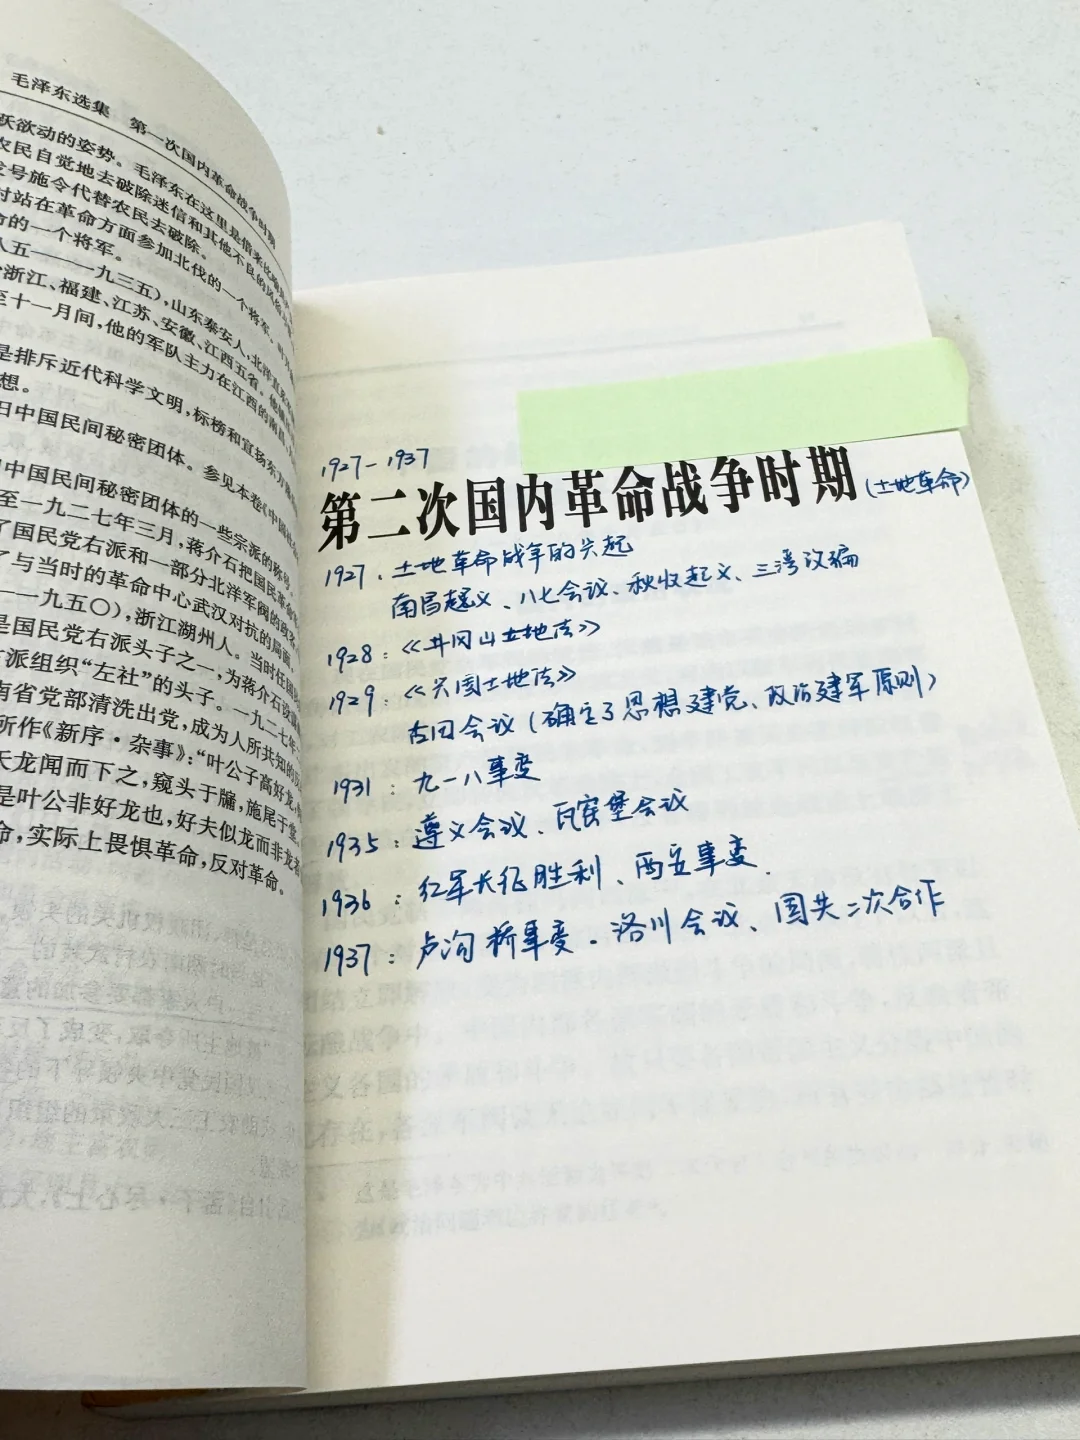 毛泽东选集 第一次国内革命战争时期
跃欲动的姿势。毛泽东在这里是借来比喻
农民自觉地去破除迷信和其他不良的风俗
发号施令代替农民去破除。
时站在革命方面参加北伐的一个将军。
命的一个将军。
八五——一九三五),山东泰安人,北洋直系
浙江、福建、江苏、安徽、江西五省。
至十一月间,他的军队主力在江西的南昌
是排斥近代科学文明,标榜和宣扬东方
想。
日中国民间秘密团体。参见本卷《中国社会
中国民间秘密团体的一些宗派的称号。
至一九二七年三月,蒋介石把国民革命
了国民党右派和一部分北洋军阀的政客
了与当时的革命中心武汉对抗的局面。
——一九五〇),浙江湖州人。当时任国
是国民党右派头子之一,为蒋介石设谋
派组织“左社”的头子。一九二七年
南省党部清洗出党,成为人所共知的反
所作《新序·杂事》:“叶公子高好龙,
天龙闻而下之,窥头于牖,施尾于堂。
是叶公非好龙也,好夫似龙而非龙者
命,实际上畏惧革命,反对革命。
1927-1937
第二次国内革命战争时期(土地革命)
1927.土地革命战争的兴起
南昌起义、八七会议、秋收起义、三湾改编
1928:《井冈山土地法》
1929:《兴国土地法》
古田会议(确立了思想建党、政治建军原则)
1931:九一八事变
1935:遵义会议、瓦窑堡会议
1936:红军长征胜利、西安事变.
1937:卢沟桥事变.洛川会议、国共二次合作